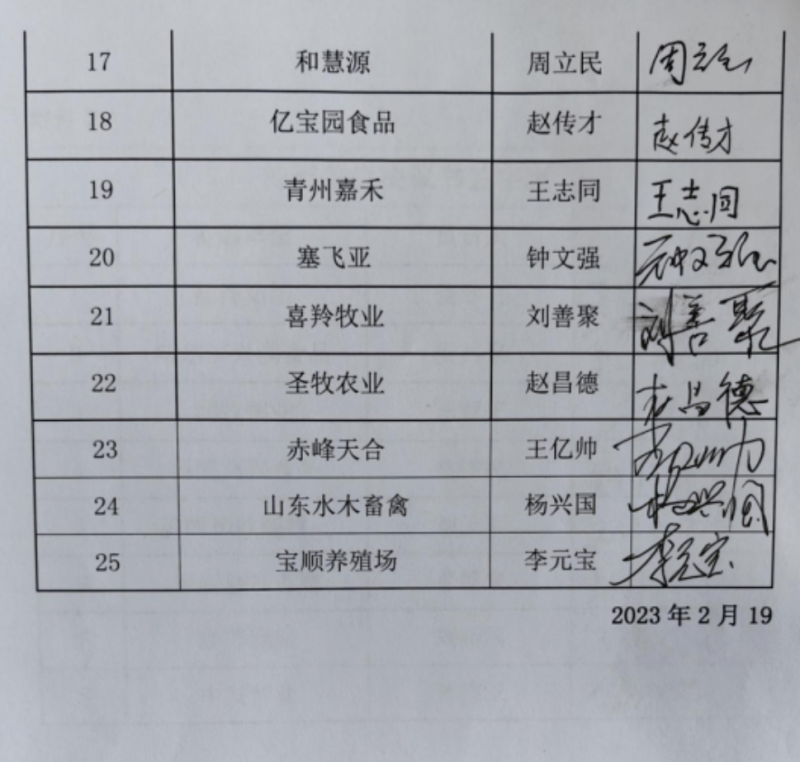 17 和慧源 周立民 周立民
18 亿宝园食品 赵传才 赵传才
19 青州嘉禾 王志同 王志同
20 塞飞亚 钟文强 钟文强
21 喜羚牧业 刘善聚 刘善聚
22 圣牧农业 赵昌德 昌德
23 赤峰天合 王亿帅
24 山东水木畜禽 杨兴国 杨兴国
25 宝顺养殖场 李元宝 李元宝
2023 年 2 月 19